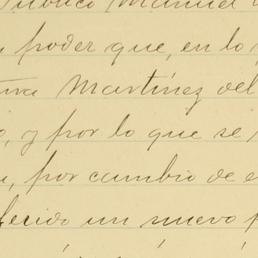 Público Manuel
poder que, en lo
Martínez del
, y por lo que se
, por cambio de
un nuevo